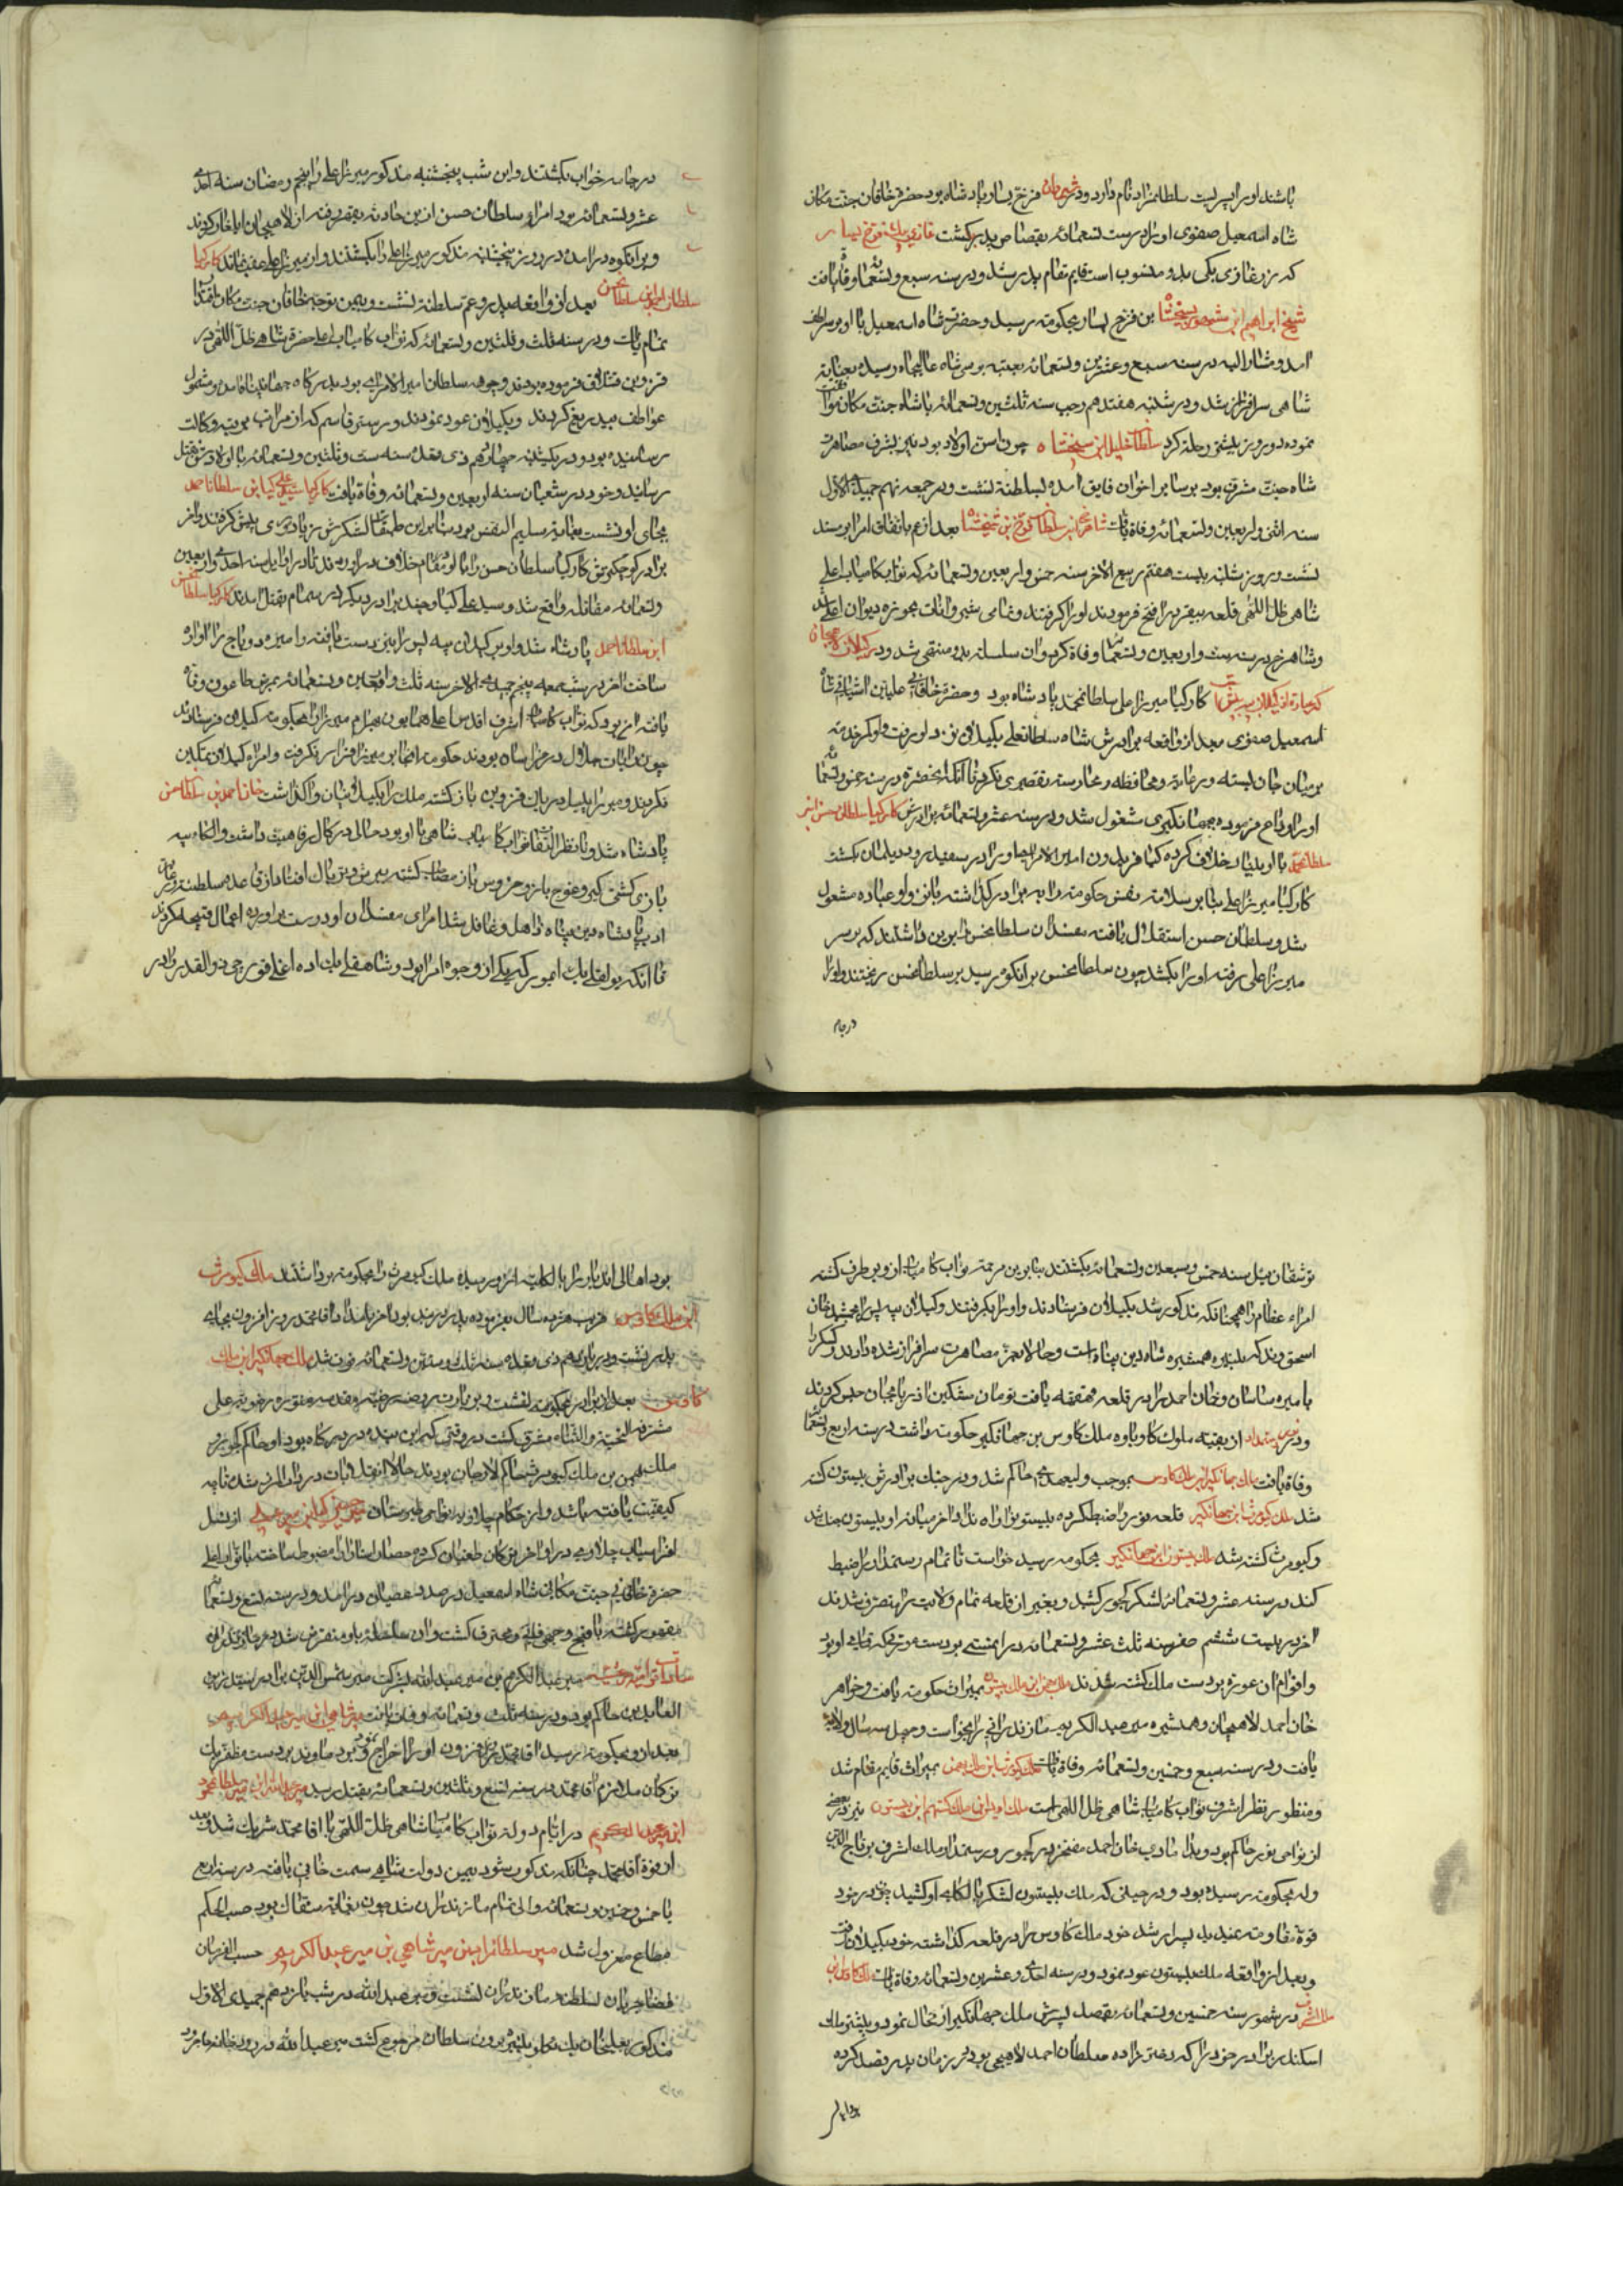 باشند اورا پسریست سلطانمراد نام دارد و در شیروان فرخ یسار پادشاه بود حضرة خاقان جنت مکان
شاه اسمعیل صفوی اورا در سنه تسعمائه بقصاص پدر بکشت غازی بیک بن فرخ یسار
که رز غازی بکی بدو منسوب است قایم مقام پدر شد و در سنه سبع و تسعمائه وفاة یافت
شیخ ابراهیم المشهور بشیخشاه بن فرخ یسار بحکومت رسید و حضرت شاه اسمعیل با او بر سر لطف
امد و مشار الیه در سنه سبع و عشرین و تسعمائه بعتبه بوسی شاه عالیجاه رسیده بعنایة
شاهی سرافراز شد و در شنبه هفتدهم رجب سنه ثلثین و تسعمائه باشاه جنت مکان موافقت
نموده دو روز پیشتر رحلة کرد سلطان خلیل ابن شیخشاه چون اسن اولاد بود نیز بشرف مصاهرت
شاه جنت مشرف بود بر سایر اخوان فایق امده بسلطنة نشست و در جمعه نهم جمیدی الاول
سنه اثنی و اربعین و تسعمائه وفاة یافت شاهرخ بن سلطان فرخ بن شیخشاه بعد از عم باتفاق امرا بر مسند
نشست و روز شنبه بیست هفتم ربیع الاخر سنه خمس و اربعین و تسعمائه که نواب کامیاب اعلی
شاهی ظل اللهی قلعه بیقرد را فتح فرمودند اورا گرفتند و تمامی شیروانات بحوزه دیوان اعلی شد
و شاهرخ در سنه ست و اربعین و تسعمائه وفاة کرد و ان سلسله بدو منتهی شد و در گیلان لاهیجان
که عبارة از گیلان بیه پیش است کارکیا میرزا علی سلطانمحمد پادشاه بود و حضرة خاقانی علیین اشیانی شاه
اسمعیل صفوی بعد از واقعه برادرش شاه سلطانعلی بگیلان نزد او رفت و او کمر خدمت
بر میان جان بسته و رعایة و محافظه و مدارسته تقصیری نکرد تا انکه انحضرة در سنه خمس و تسعمائه
اورا وداع فرموده بجهانگیری مشغول شد و در سنه عشر و تسعمائه برادرش کارکیا سلطان حسن ابن
سلطانمحمد با او بنیاد خلاف کرده کیا فریدون امیر الامرا اورا در سفید رود دیلمان بکشت
کارکیا میرزا علی بنابر سلامة نفس حکومة را به برادر گذاشته بانزوا و عباده مشغول
شد و سلطان حسن استقلال یافته مفسدان سلطانحسن را برین داشتند که بر سر
میرزا علی رفته اورا بکشد چون سلطانحسن برانکوه رسید بر سلطانحسن ریختند و اورا
در جامه
در جامه خواب بکشتند و این شب پنجشنبه مذکور میرزا علی را پنجم رمضان سنه احدی
عشر و تسعمائه بود امراء سلطان حسن ازین حادثه بقهر رفته از لاهیجان ایلغار کردند
و برانکوه درامده در روز پنجشنبه مذکور میرزا علی را بکشتند و از میرزا علی عقب نماند کارکیا
سلطان احمد ابن سلطانحسن بعد از واقعه پدر و عم بسلطنة نشست و بیمن توجه خاقان جنت مکان اقتدار
تمام یافت و در سنه ثلث و ثلثین و تسعمائه که نواب کامیاب اعلی حضرة شاهی ظل اللهی در
قزوین قشلاق فرموده بودند و چوهه سلطان امیر الامرای بود بدرگاه جهان پناه امد و مشمول
عواطف بیدریغ گردید و بگیلان عود نمودند و رستم قاسم که از مراتب بوکالت
رسانیده بود و در یکشنبه چهاردهم ذی قعده سنه ست و ثلثین و تسعمائه با اولادش بقتل
رسانید و خود در شعبان سنه اربعین و تسعمائه وفاة یافت کارکیا سید علی کیا بن سلطان احمد
بجای او نشست بغایة سلیم النفس بود بنابراین طبقات لشکرش زیادتی پیش گرفتند و از
برادر کوچکترش کارکیا سلطان حسن را با او بمقام خلاف در اوردند تا در اوایل سنه احدی و اربعین
و تسعمائه مقاتله واقع شد و سید علی کیا و چند برادر دیگر در تمام بقتل امدند کارکیا سلطانحسن
ابن سلطان احمد پادشاه شد و او بر گیلان بیه پس را نیز دست یافته و امیره دوباج را اواره
ساخت اخر در شب جمعه پنجم جمیدی الاخر سنه ثلث و اربعین و تسعمائه بمرض طاعون وفاة
یافت امر بود که نواب کامیاب اشرف اقدس اعلی همایون بهرام میرزا را بحکومة گیلان فرستادند
چون رایات جلال در خراسان بودند حکومة انجا بر میرزا قرار نگرفت و امراء گیلان تمکین
نکردند و میرزا بیبیل دریابی قزوین بازگشته ملک را بگیلانیان واگذاشت خان احمد بن سلطانحسن
پادشاه شد و تا نظر التفات نواب کامیاب شاهی با او بود حالی در کمال رفاهیت داشت و الکاء بیه
ادب پادشاه دین پناه ذاهل و غافل شد امرای مفسدان او دست براورده اعمال قبیحه کردند
تا انکه یولقلی بیک امور کبر یکی از وجوه امرا بود و شاهقلی بیک اده اغلی قورچی ذوالقدر را در
توشقان ییل سنه خمس و سبعین و تسعمائه بکشتند بنابرین مرحمة نواب کامیاب از وی برطرف گشته
امراء عظام را همچنانکه مذکور شد بگیلان فرستادند و اورا بگرفتند و گیلان بیه پس را بجمشید خان
اسحق وند که بنبیره همشیره شاه دین پناه است و حالا بعز مصاهرت سرافراز شده دادند و کسکر را
بامیره ساسان و خان احمد را در قلعه قهقهه یافت تومان مشکین اذربایجان حبس کردند
و در رستمدار از بقیه ملوک گاوباره ملک کاوس بن جهانگیر حکومة داشت در سنه اربع و تسعمائه
وفاة یافت ملک جهانگیر بن ملک کاوس بموجب ولیعهدی حاکم شد و در جنگ برادرش بیستون کشته
شد ملک کیومرث ابن جهانگیر قلعه نور را ضبط کرده بیستون را اواه نداد اخر میانه او و بیستون جنگ شد
و کیومرث کشته شد ملک بیستون ابن جهانگیر بحکومة رسید خواست تا تمام رستمدار را ضبط
کند در سنه عشر و تسعمائه لشکر کجور کشید و بغیر از قلعه تمام ولایت را متصرف شدند
اخر در بیست ششم صفر سنه ثلث عشر و تسعمائه در امنستی بود دست عورتی که قبای او بود
و اقوام ان عورة بود دست ملک کشته شدند ملک بهمن ابن ملک بیستون بمیراث حکومة یافت و خواهر
خان احمد لاهیجان و همشیره میر عبد الکریم مازندرانی را بخواست و چهل سه سال ولایة
یافت و در سنه سبع و خمسین و تسعمائه وفاة یافت ملک کیومرث ابن ملک بهمن بمیراث قایم مقام شد
و منظور نظر اشرف نواب کامیاب شاهی ظل اللهی است ملک اویس ابن ملک کستهم ابن بیستون نیز در بعضی
از نواحی نور حاکم بود و بدامادی خان احمد مفتخر در کجور رستمدار ملک اشرف بن تاج الدین
وله بحکومة رسیده بود و در حینی که ملک بیستون لشکر بالکای او کشید چون در خود
قوة مقاومة ندید پسر ارشد خود ملک کاوس را در قلعه گذاشته خود بگیلان رفت
و بعد از واقعه ملک بیستون عود نمود و در سنه احدی و عشرین و تسعمائه وفاة یافت ملک کاوس ابن
ملک اشرف در شهور سنه خمسین و تسعمائه بقصد پسرش ملک جهانگیر انتحال نمود و پیشتر ملک
اسکندر برادر خود را که دختر زاده سلطان احمد لاهیجی بود در زمان پدر قصد کرده
بود اهالی
بود اهالی اندیار را بالکلیه ازو رسیده ملک کیومرث را بحکومة برداشتند ملک کیومرث
ابن ملک کاوس قریب هژده سال بفرموده پدر در بند بود اخر بامداد اقا محمد روزافزون بجای
پدر نشست و در یازدهم ذی قعده سنه ثلث و ستین و تسعمائه فوت شد ملک جهانگیر ابن ملک
کاوس بعد از برادر بحکومة نشست و بزیارت روضه رضیه مقدسه منوره رضویه علی
مشرفه التحیة و الثناء مشرف گشت در وقتی که این بنده در درگاه بود او حاکم کجور و
ملک بهمن بن ملک کیومرث حاکم لارجان بودند حالا انتقال ایشان در دار المرز شد تا چه
کیفیت یافته باشد و از حکام چلاو به نواحی طبرستان میر حسین کیا بن میر علی از نسل
افراسیاب چلاوی در اواخر ارکان طغیان کرده حصار استا را مضبوط ساخته با نواب اعلی
حضرة خاقانی جنت مکانی شاه اسمعیل در صدد عصیان درامد و در سنه تسع و تسعمائه
مقهور گشته باقبح وجهی فانی و محترق گشت و ان سلسله باو منقرض شد و در مازندران
سادات قوامیه حسینیه میر عبد الکریم بن میر عبد الله بشرکت میر شمس الدین برادر سید زین
العابدین حاکم بود و در سنه ثلث و تسعمائه وفات یافت میر شاهی ابن میر عبد الکریم
بعد از وی بحکومة رسید اقا محمد روزافزون اورا اخراج نموده بود دماوند بر دست مظفر بیک
ترکمان ملازم اقا محمد در سنه تسع و ثلثین و تسعمائه بقتل رسید میر عبد الله ابن میر سلطانمحمود
ابن میر عبد الکریم در ایام دولة نواب کامیاب شاهی ظل اللهی با اقا محمد شریک شد و بعد
از فوت اقا محمد چنانکه مذکور شود بیمن دولت شاهی سمت خانی یافته در سنه اربع
یا خمس و خمسین و تسعمائه والی تمام مازندران شد چون بغایة سفاک بود حسب الحکم
مطاع معزول شد میر سلطانمراد ابن میر شاهی بن میر عبد الکریم حسب الفرمان
قضا جریان بسلطنة مازندران نشست و میر عبد الله در شب یازدهم جمیدی الاول